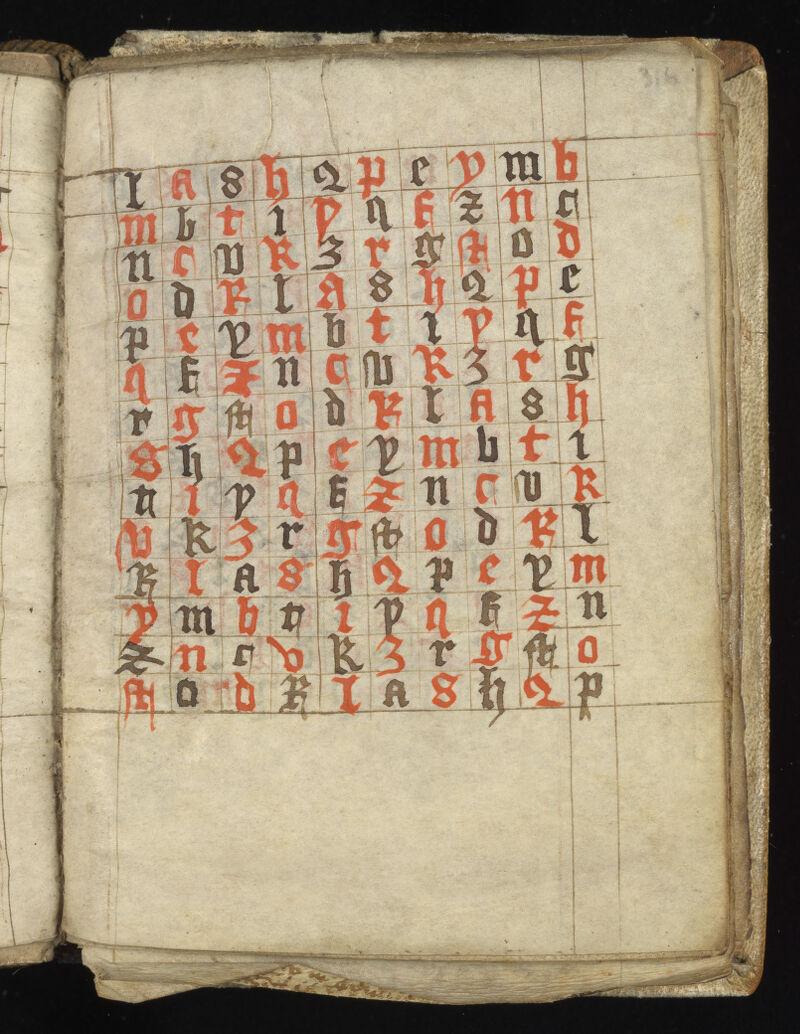 316
l a s h 2 p e y m b
m b t i y q f z n c
n c v k 3 r g ſt o d
o d x l a s h 2 p e
p e y m b t i y q f
q f z n c v k 3 r g
r g ſt o d x l a s h
s h 2 p e y m b t i
t i y q f z n c v k
v k 3 r g ſt o d x l
x l a s h 2 p e y m
y m b t i y q f z n
z n c v k 3 r g ſt o
ſt o d x l a s h 2 p